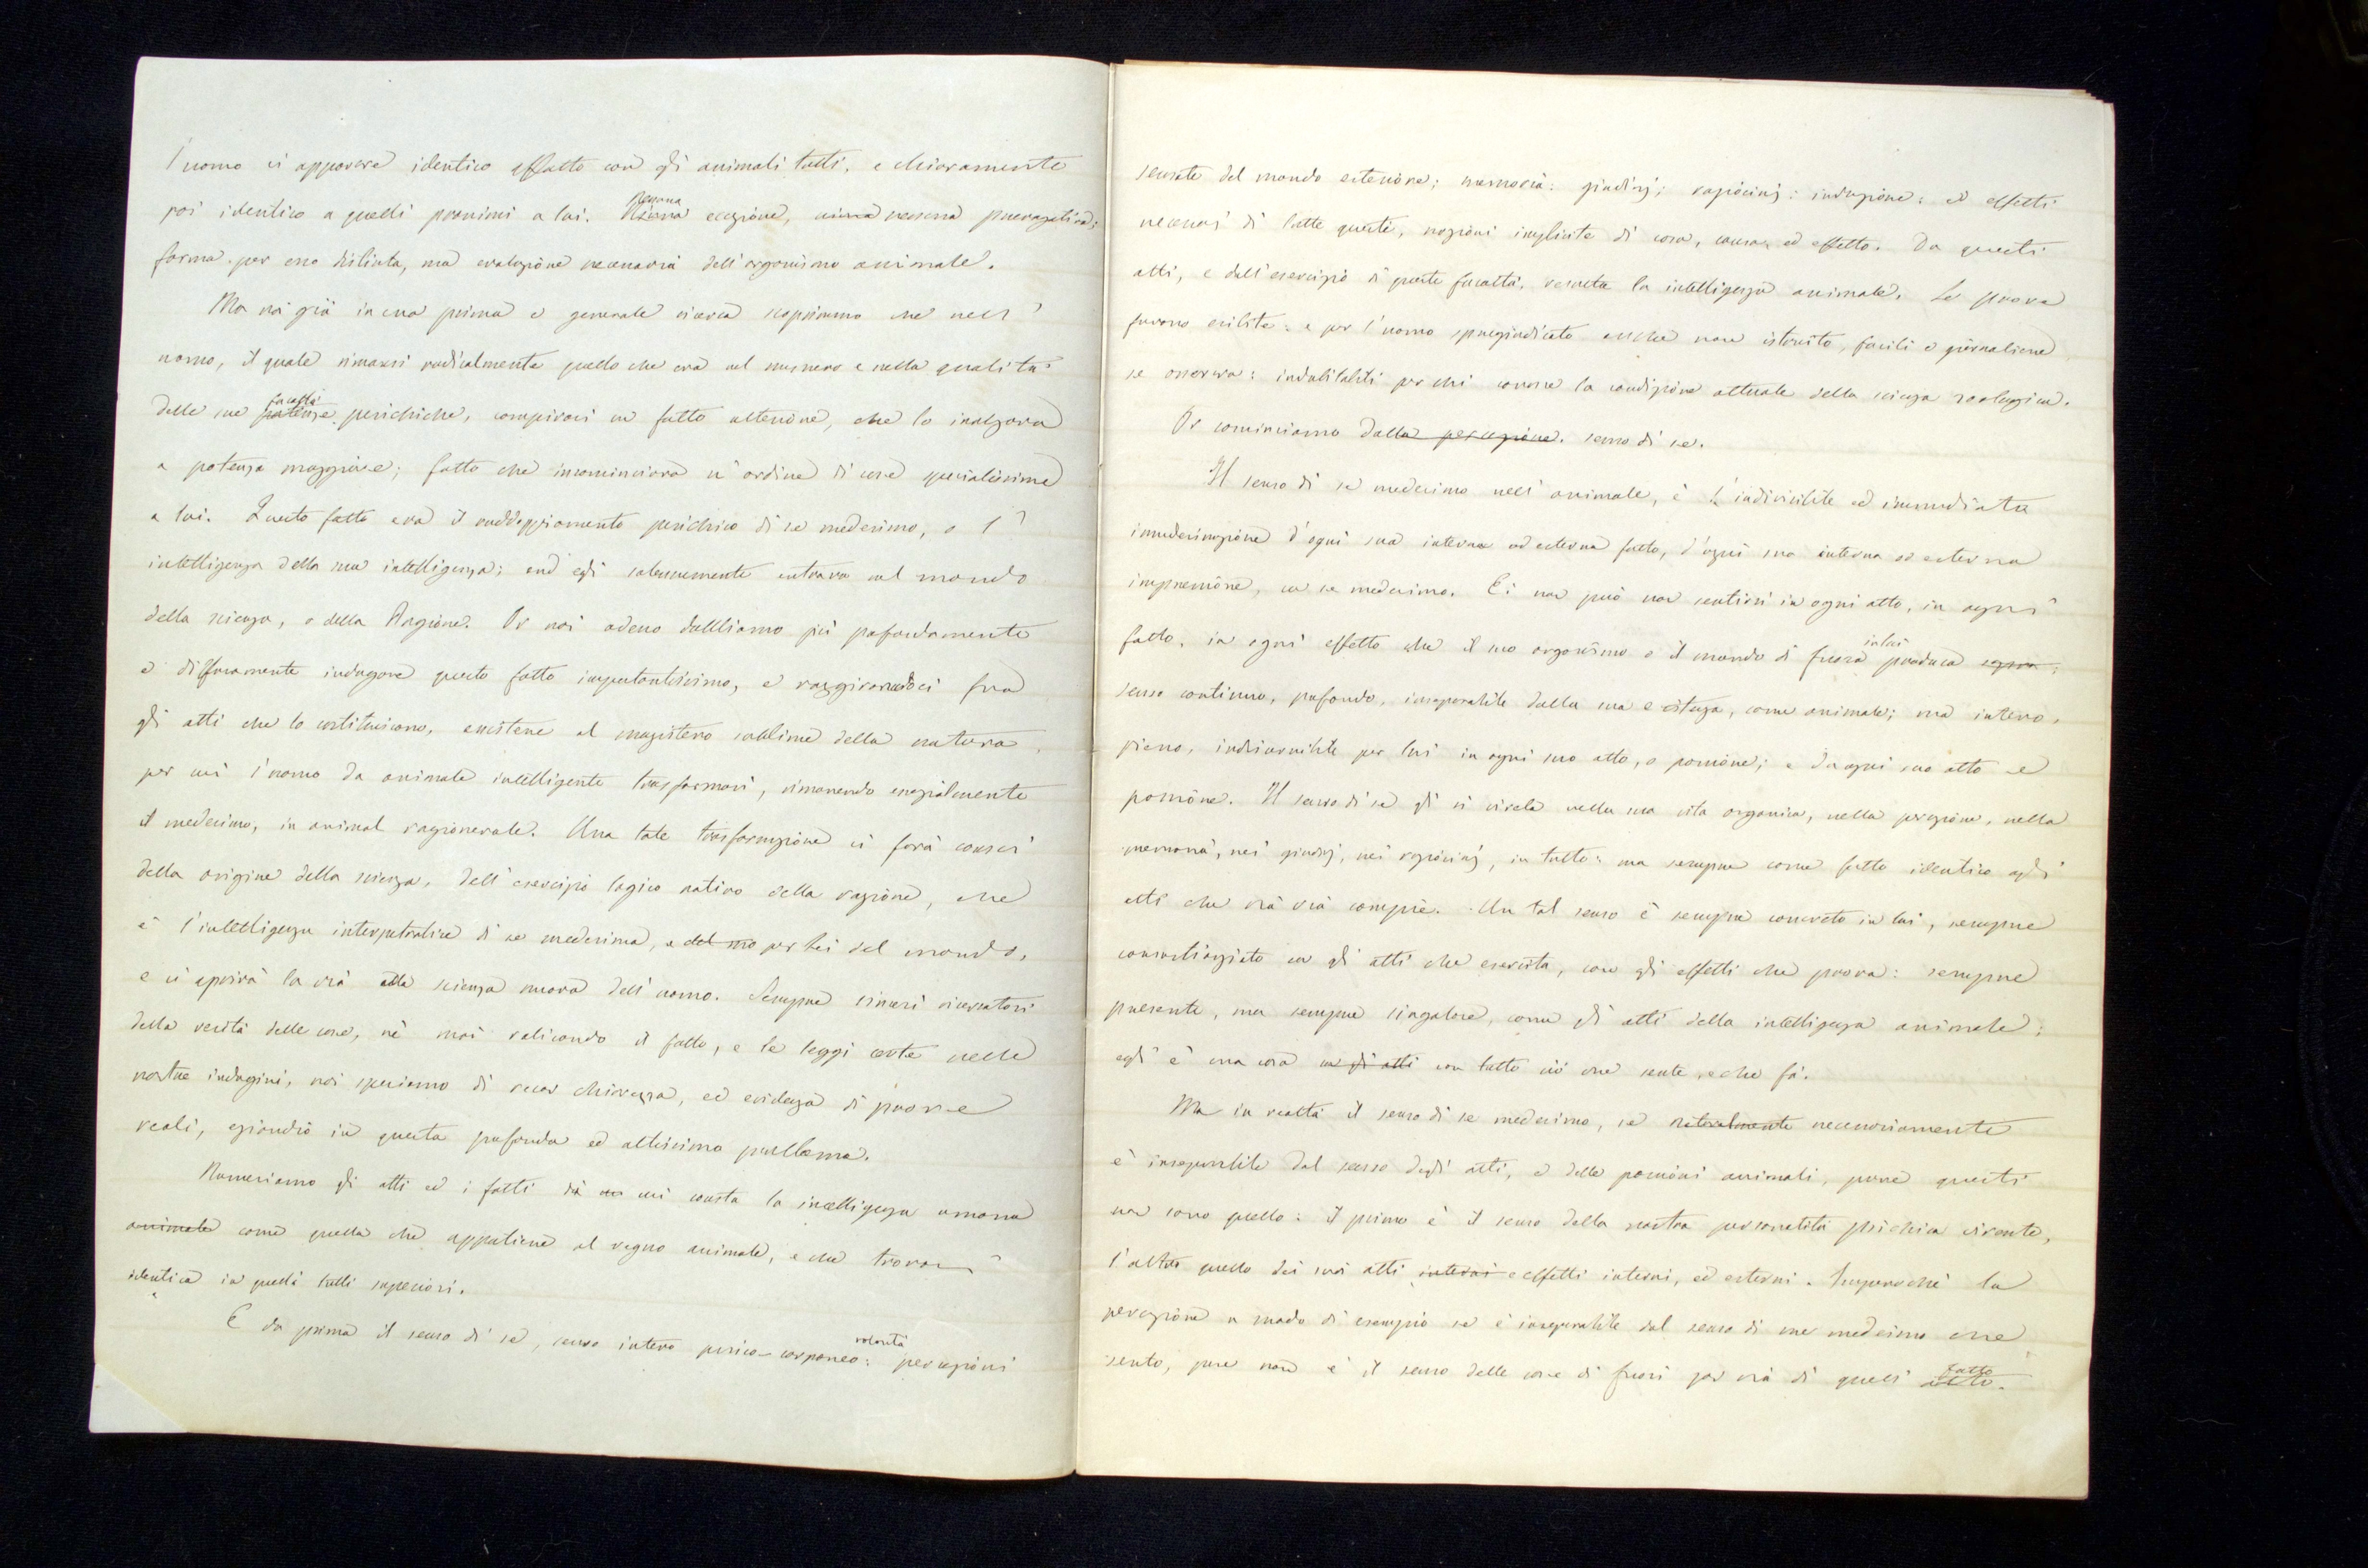 l'uomo ci apparve identico affatto con gli animali tutti, e chiaramente
poi identico a quelli prossimi a lui. Nessuna eccezione, nessuna prerogativa;
forma per esso distinta, ma evoluzione necessaria dell'organismo animale.
Ma noi già in una prima e generale ricerca scoprimmo che nell'
uomo, il quale rimansi radicalmente quello che era nel numero e nella qualità
delle sue potenze facoltà psichiche, compivasi un fatto ulteriore, che lo inalzava
a potenza maggiore; fatto che incominciava un'ordine di cose specialissime
a lui. Questo fatto era il raddoppiamento psichico di se medesimo, o l'
intelligenza della sua intelligenza; ond'egli solennemente entrava nel mondo
della scienza, e della Ragione. Or noi adesso dobbiamo più profondamente
e diffusamente indagare questo fatto importantissimo, e raggirandoci fra
gli atti che lo costituiscono, assistere al magistero sublime della natura,
per cui l'uomo da animale intelligente trasformasi, rimanendo essenzialmente
il medesimo, in animal ragionevole. Una tale trasformazione ci farà consci
della origine della scienza, dell'esercizio logico nativo della ragione, che
è l'intelligenza interpetratrice di se medesima, e del mo per lei del mondo,
e ci aprirà la via alla scienza nuova dell'uomo. Sempre sinceri ricercatori
della verità delle cose, nè mai valicando il fatto, e le leggi certe nelle
nostre indagini, noi speriamo di recar chiarezza, ed evidenza di prove
reali, eziandio in questo profondo ed altissimo problema.
Numeriamo gli atti ed i fatti di cui consta la intelligenza umana
animale come quella che appartiene al regno animale, e che trovasi
identica in quelli tutti superiori.
E da prima il senso di se, senso intero psico-corporeo: volontà percezioni
sensate del mondo esteriore; memoria: giudizj; raziocinj: induzione: ed effetti
necessarj di tutte queste, nozioni implicite di cosa, causa, ed effetto. Da questi
atti, e dall'esercizio di queste facoltà, resulta la intelligenza animale. Le prove
furono esibite: e per l'uomo spregiudicato anche non istruito, facili e giornaliere
se osserva: indubitabili per chi conosce la condizione attuale della scienza zoologica.
Or cominciamo dalla percezione. senso di se.
Il senso di se medesimo nell'animale, è l'indivisibile ed immediata
immedesimazione d'ogni sua interna od esterna fatto, d'ogni sua interna od esterna
impressione, con se medesimo. Ei non può non sentirsi in ogni atto, in ogni
fatto, in ogni effetto che il suo organismo e il mondo di fuora in lui produca sopra;
senso continuo, profondo, inseparabile dalla sua esistenza, come animale; ma intero,
pieno, indiscernibile per lui in ogni suo atto, o passione; e da ogni suo atto e
passione. Il senso di se gli si rivela nella sua vita organica, nella percezione, nella
memoria, nei giudizj, nei raziocinj, in tutto: ma sempre come fatto identico agli
atti che via via compie. Un tal senso è sempre concreto in lui, sempre
consustanziato con gli atti che esercita, con gli effetti che prova: sempre
presente, ma sempre singolare, come gli atti della intelligenza animale;
egli è una cosa con gli atti con tutto ciò che sente, e che fà.
Ma in realtà il senso di se medesimo, se naturalmente necessariamente
è inseparabile dal senso degli atti, e delle passioni animali, pure questi
non sono quello: il primo è il senso della nostra personalità psichica vivente,
l'altro quello dei suoi atti interni e effetti interni, ed esterni. Imperochè la
percezione a modo di esempio se è inseparabile dal senso di me medesimo che
sento, pure non è il senso delle cose di fuori per via di quell' atto fatto.